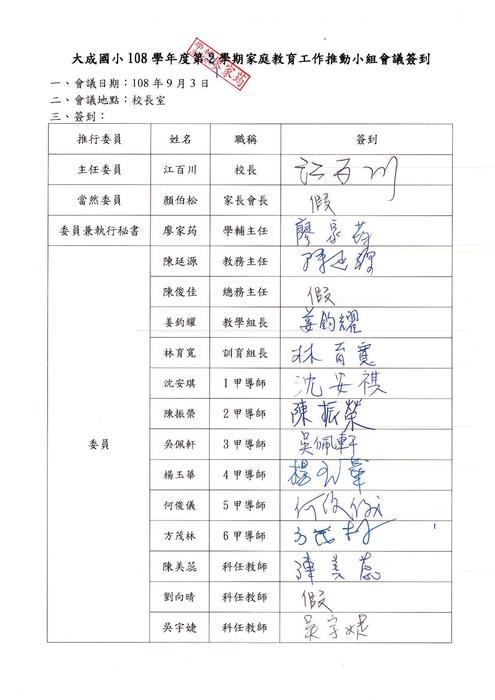 大成國小 108 學年度第2學期家庭教育工作推動小組會議簽到
一、會議日期：108 年 9 月 3 日
二、會議地點：校長室
三、簽到：
推行委員 姓名 職稱 簽到
主任委員 江百川 校長 江百川
當然委員 顏伯松 家長會長 假
委員兼執行秘書 廖家筠 學輔主任 廖家筠
陳延源 教務主任 陳延源
陳俊佳 總務主任 假
姜鈞耀 教學組長 姜鈞耀
林育寬 訓育組長 林育寬
沈安琪 1 甲導師 沈安祺
陳振榮 2 甲導師 陳振榮
委員 吳佩軒 3 甲導師 吳佩軒
楊玉華 4 甲導師 楊玉華
何俊儀 5 甲導師 何俊儀
方茂林 6 甲導師 方茂林
陳美蕊 科任教師 陳美蕊
劉向晴 科任教師 假
吳宇婕 科任教師 吳宇婕